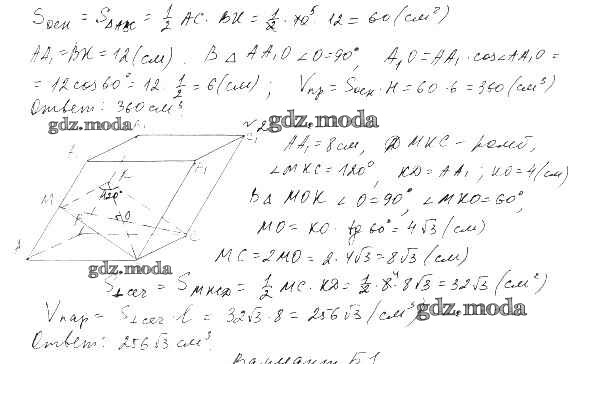 Sосн = S△ABC = 1/2 AC · BK = 1/2 · 10 · 12 = 60 (см²)
AA₁ = BK = 12 (см). В △ AA₁O ∠O = 90°, A₁O = AA₁ · cos∠AA₁O =
= 12 cos 60° = 12 · 1/2 = 6 (см); Vпр = Sосн · H = 60 · 6 = 360 (см³)
Ответ: 360 см³.
gdz.moda
№2
gdz.moda
AA₁ = 8 см, MKC - ромб,
∠MKC = 120°, KD = AA₁; KO = 4 (см)
В △ MOK ∠O = 90°, ∠MKO = 60°,
MO = KO · tg 60° = 4√3 (см)
M
K
120°
O
MC = 2MO = 2 · 4√3 = 8√3 (см)
gdz.moda
S⊥сеч = SMKCD = 1/2 MC · KD = 1/2 · 8 · 8√3 = 32√3 (см²)
Vпар = S⊥сеч · l = 32√3 · 8 = 256√3 (см³)
gdz.moda
Ответ: 256√3 см³.
Вариант Б1